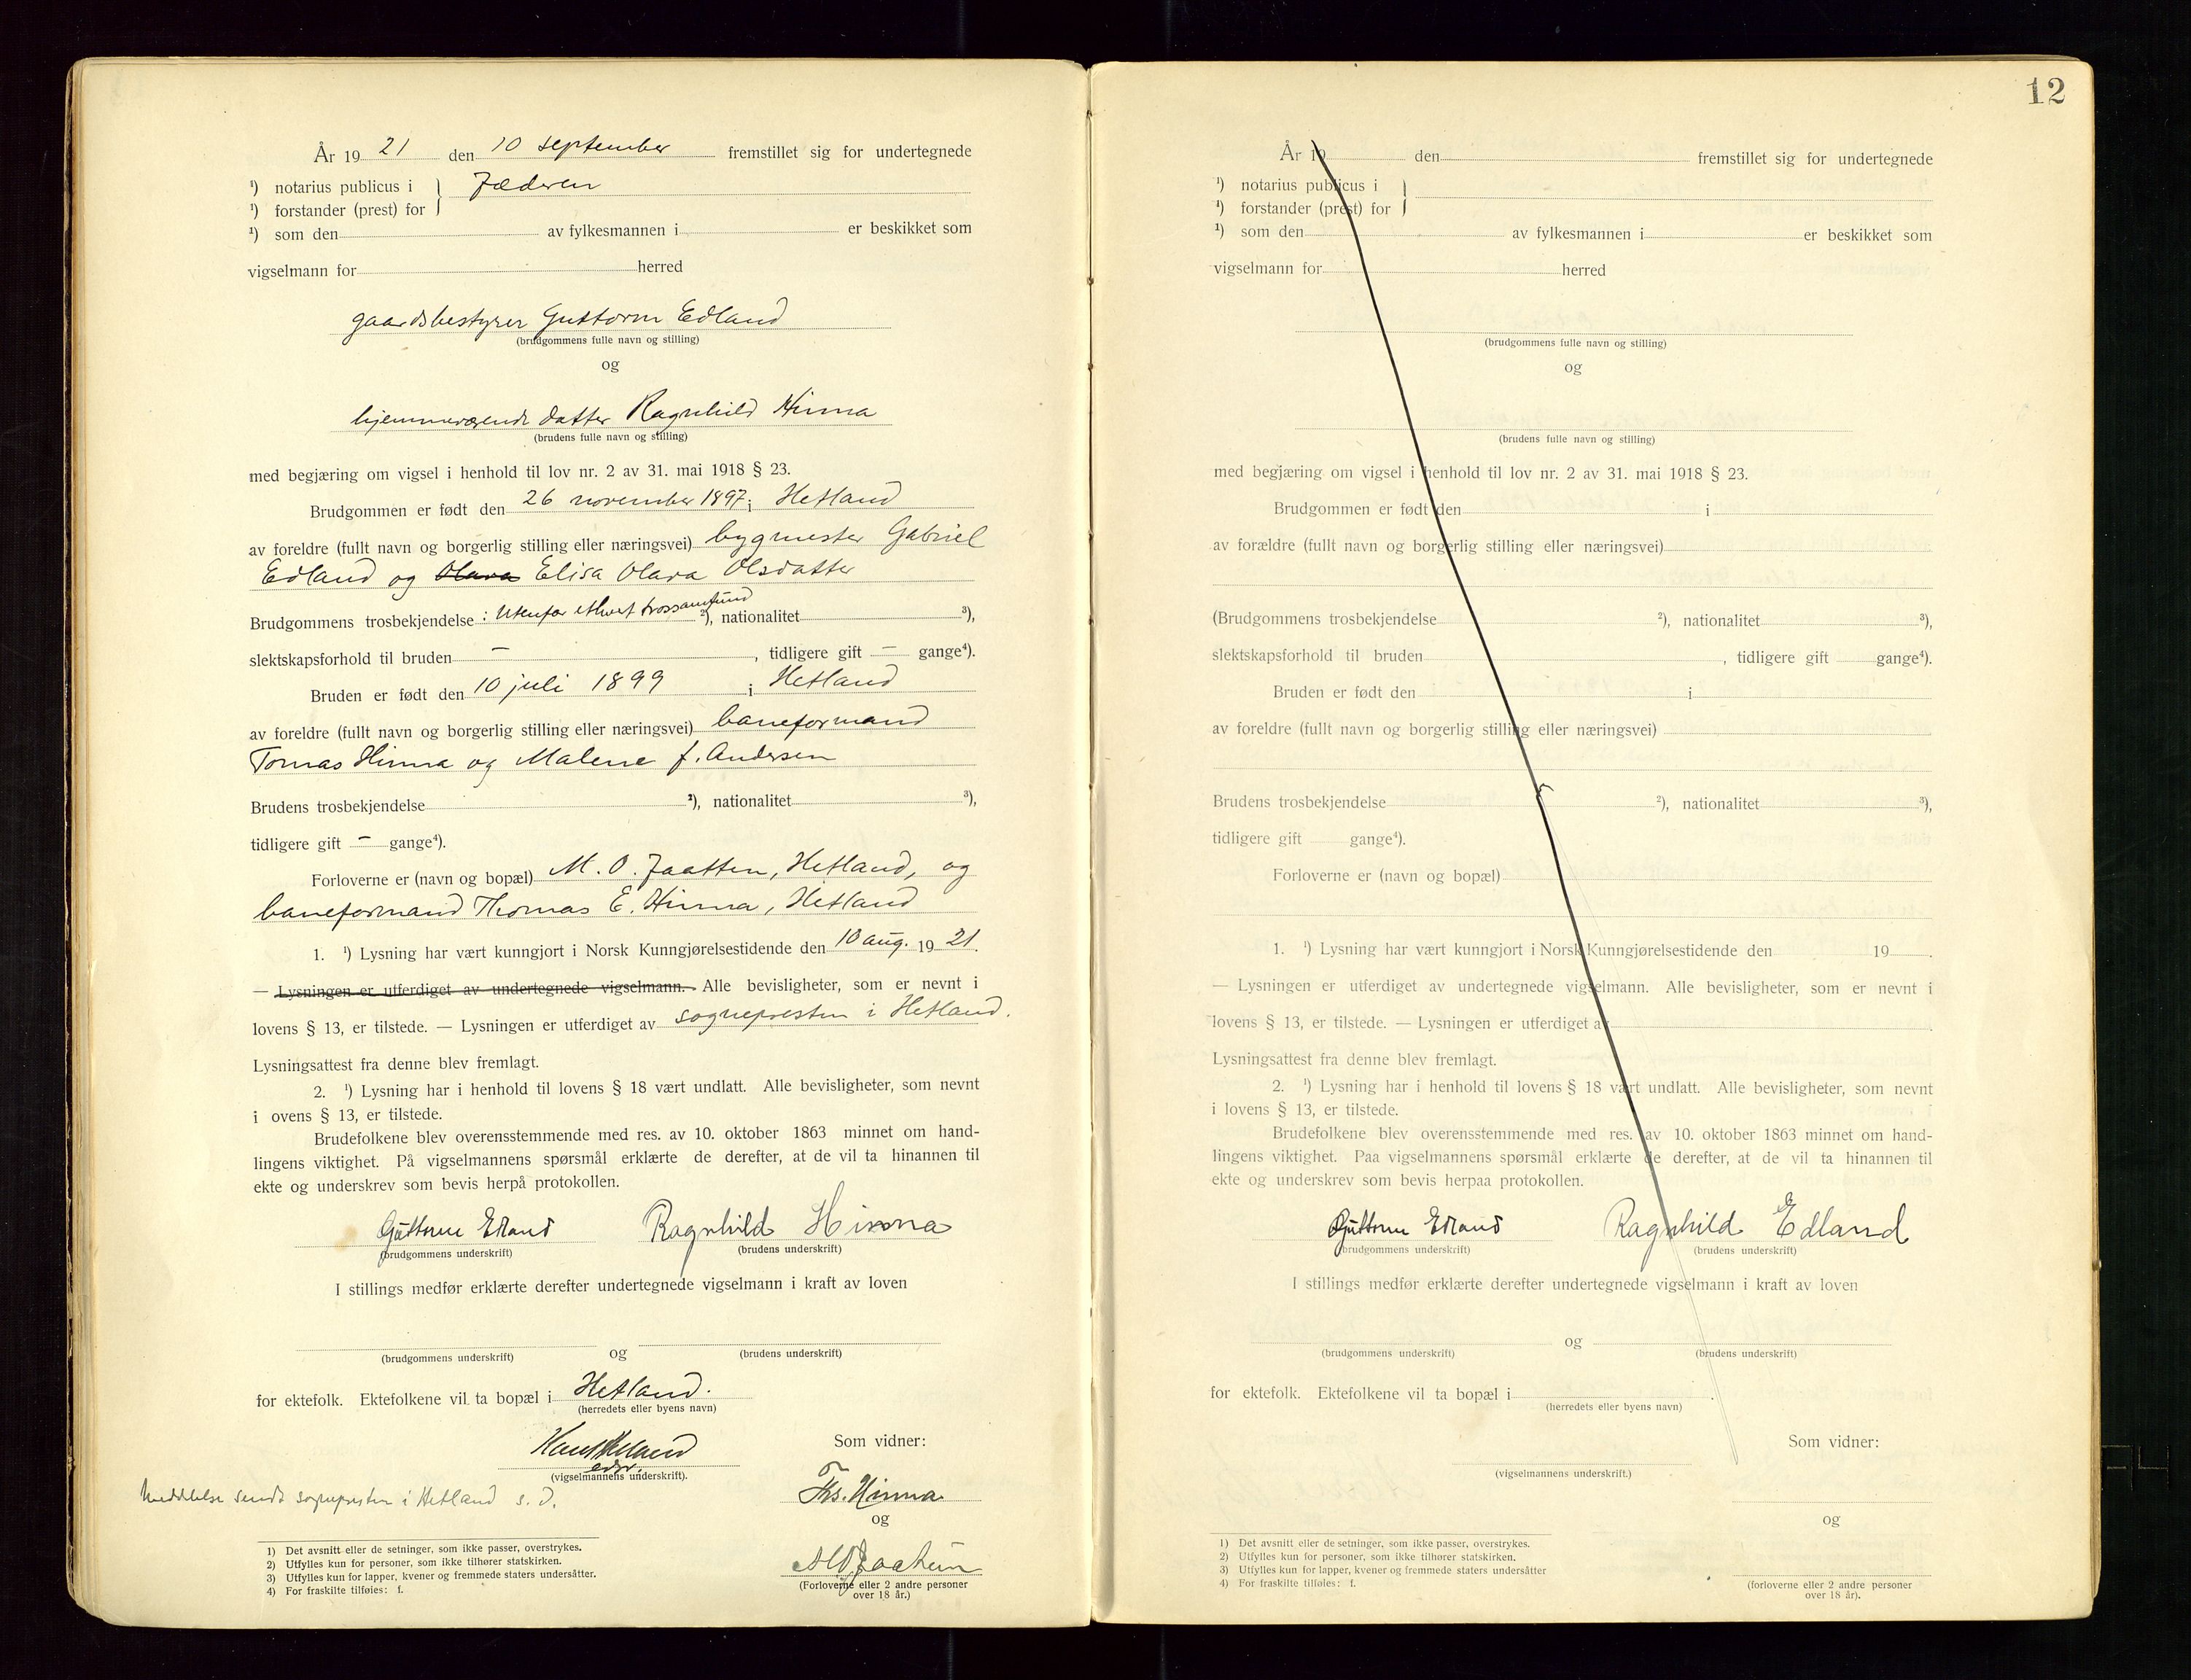 År 19 21 den 10 september fremstillet sig for undertegnede
¹) notarius publicus i } Jæderen
¹) forstander (prest) for
¹) som den av fylkesmannen i er beskikket som
vigselmann for herred
gaardsbestyrer Guttorm Edland
(brudgommens fulle navn og stilling)
og
hjemmeværende datter Ragnhild Hinna
(brudens fulle navn og stilling)
med begjæring om vigsel i henhold til lov nr. 2 av 31. mai 1918 § 23.
Brudgommen er født den 26 november 1897 i Hetland
av foreldre (fullt navn og borgerlig stilling eller næringsvei) bygmester Gabriel
Edland og Olava Elisa Olava Olsdatter
Brudgommens trosbekjendelse : Utenfor ethvert trossamfund ²), nationalitet ³),
slektskapsforhold til bruden — , tidligere gift — gange⁴).
Bruden er født den 10 juli 1899 i Hetland
av foreldre (fullt navn og borgerlig stilling eller næringsvei) baneformand
Tomas Hinna og Malene f. Andersen
Brudens trosbekjendelse ²), nationalitet ³),
tidligere gift — gange⁴).
Forloverne er (navn og bopæl) M. O. Jaatten, Hetland, og
baneformand Thomas E. Hinna, Hetland
1. ¹) Lysning har vært kunngjort i Norsk Kunngjørelsestidende den 10 aug. 19 21.
— Lysningen er utferdiget av undertegnede vigselmann. Alle bevisligheter, som er nevnt i
lovens § 13, er tilstede. — Lysningen er utferdiget av sognepresten i Hetland.
Lysningsattest fra denne blev fremlagt.
2. ¹) Lysning har i henhold til lovens § 18 vært undlatt. Alle bevisligheter, som nevnt
i ovens § 13, er tilstede.
Brudefolkene blev overensstemmende med res. av 10. oktober 1863 minnet om hand-
lingens viktighet. På vigselmannens spørsmål erklærte de derefter, at de vil ta hinannen til
ekte og underskrev som bevis herpå protokollen.
Guttorm Edland Ragnhild Hinna
(brudgommens underskrift) (brudens underskrift)
I stillings medfør erklærte derefter undertegnede vigselmann i kraft av loven
og
(brudgommens underskrift) (brudens underskrift)
for ektefolk. Ektefolkene vil ta bopæl i Hetland.
(herredets eller byens navn)
Som vidner:
(vigselmannens underskrift).
Meddelelse sendt sognepresten i Hetland s. d.
Ths. Hinna
og
M O Jaatten
(Forloverne eller 2 andre personer
over 18 år.)
1) Det avsnitt eller de setninger, som ikke passer, overstrykes.
2) Utfylles kun for personer, som ikke tilhører statskirken.
3) Utfylles kun for lapper, kvener og fremmede staters undersåtter.
4) For fraskilte tilføies: f.
12
År 19 den fremstillet sig for undertegnede
¹) notarius publicus i }
¹) forstander (prest) for
¹) som den av fylkesmannen i er beskikket som
vigselmann for herred
(brudgommens fulle navn og stilling)
og
(brudens fulle navn og stilling)
med begjæring om vigsel i henhold til lov nr. 2 av 31. mai 1918 § 23.
Brudgommen er født den i
av forældre (fullt navn og borgerlig stilling eller næringsvei)
(Brudgommens trosbekjendelse ²), nationalitet ³),
slektskapsforhold til bruden , tidligere gift gange⁴).
Bruden er født den i
av foreldre (fullt navn og borgerlig stilling eller næringsvei)
Brudens trosbekjendelse ²), nationalitet ³),
tidligere gift gange⁴).
Forloverne er (navn og bopæl)
1. ¹) Lysning har vært kunngjort i Norsk Kunngjørelsestidende den 19 .
— Lysningen er utferdiget av undertegnede vigselmann. Alle bevisligheter, som er nevnt i
lovens § 13, er tilstede. — Lysningen er utferdiget av .
Lysningsattest fra denne blev fremlagt.
2. ¹) Lysning har i henhold til lovens § 18 vært undlatt. Alle bevisligheter, som nevnt
i lovens § 13, er tilstede.
Brudefolkene blev overensstemmende med res. av 10. oktober 1863 minnet om hand-
lingens viktighet. Paa vigselmannens spørsmål erklærte de derefter, at de vil ta hinannen til
ekte og underskrev som bevis herpaa protokollen.
Guttorm Edland Ragnhild Edland
(brudgommens underskrift) (brudens underskrift)
I stillings medfør erklærte derefter undertegnede vigselmann i kraft av loven
og
(brudgommens underskrift) (brudens underskrift)
for ektefolk. Ektefolkene vil ta bopæl i .
(herredets eller byens navn)
Som vidner:
(vigselmannens underskrift.)
og
(forloverne eller 2 andre personer
over 18 år).
1) Det avsnitt eller de setninger, som ikke passer, overstrykes.
2) Utfylles kun for personer, som ikke tilhører statskirken.
3) Utfylles kun for lapper, kvener og fremmede staters undersåtter
4) For fraskilte tilføies: f.